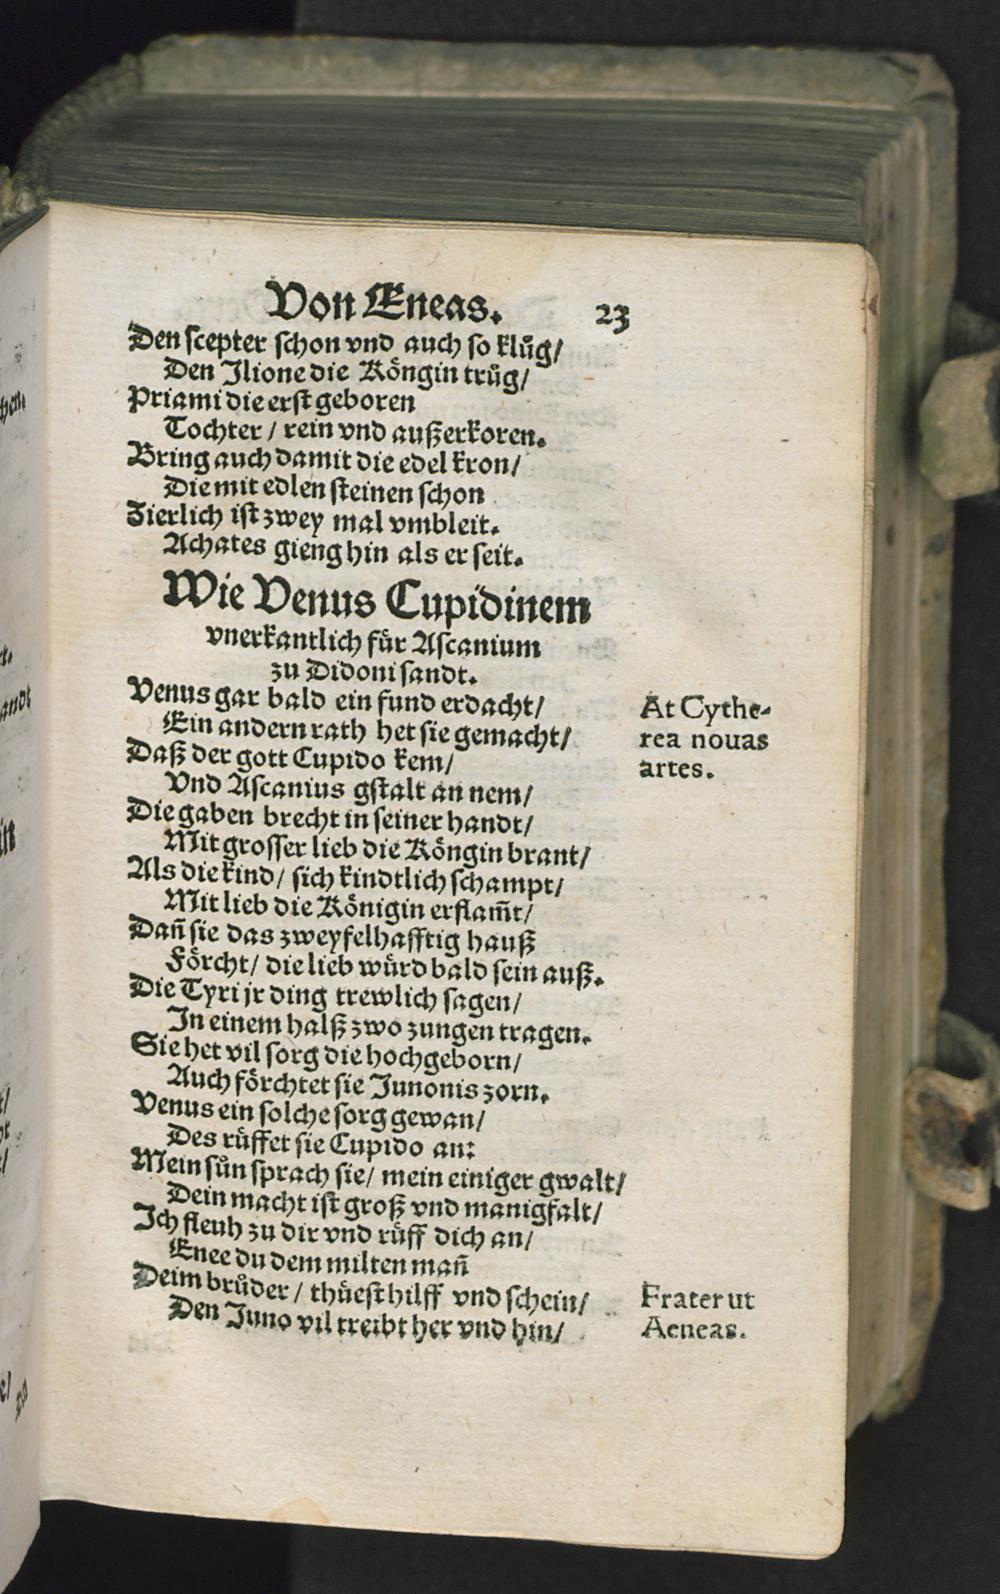 Von Æneas. 23
Den scepter schon vnd auch so klůg/
Den Ilione die Köngin trůg/
Priami die erst geboren
Tochter / rein vnd außerkoren.
Bring auch damit die edel kron/
Die mit edlen steinen schon
Zierlich ist zwey mal vmbleit.
Achates gieng hin als er seit.
Wie Venus Cupidinem
vnerkantlich für Ascanium
zu Didoni sandt.
Venus gar bald ein fund erdacht/
Ein andern rath het sie gemacht/
Daß der gott Cupido kem/
Vnd Ascanius gstalt an nem/
Die gaben brecht in seiner handt/
Mit grosser lieb die Köngin brant/
Als die kind/ sich kindtlich schampt/
Mit lieb die Königin erflam̃t/
Dañ sie das zweyfelhafftig hauß
Förcht/ die lieb würd bald sein auß.
Die Tyri jr ding trewlich sagen/
In einem halß zwo zungen tragen.
Sie het vil sorg die hochgeborn/
Auch förchtet sie Junonis zorn.
Venus ein solche sorg gewan/
Des rüffet sie Cupido an:
Mein sůn sprach sie/ mein einiger gwalt/
Dein macht ist groß vnd manigfalt/
Ich fleuh zu dir vnd rüff dich an/
Enee du dem milten mañ
Deim brůder / thüest hilff vnd schein/
Den Juno vil treibt her vnd hin/
At Cythe-
rea nouas
artes.
Frater ut
Aeneas.